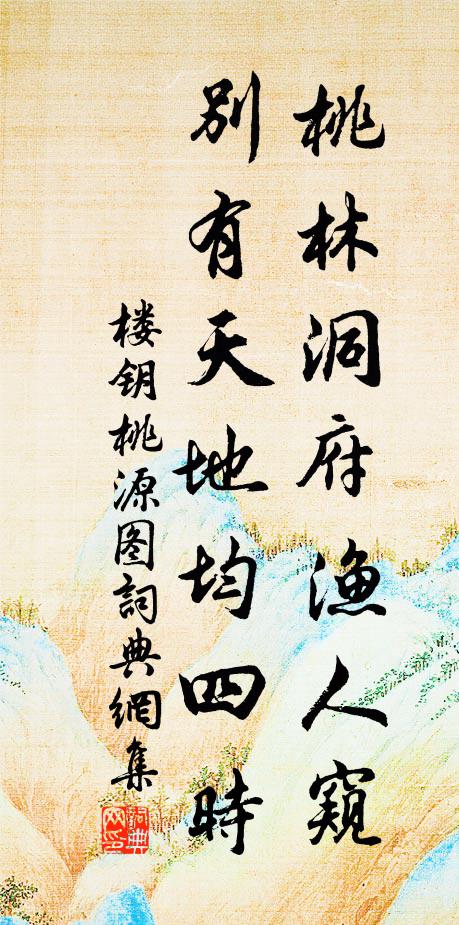 桃林洞府渔人窥
别有天地均四時
楼钥桃源图詞典網集
詞典
网印